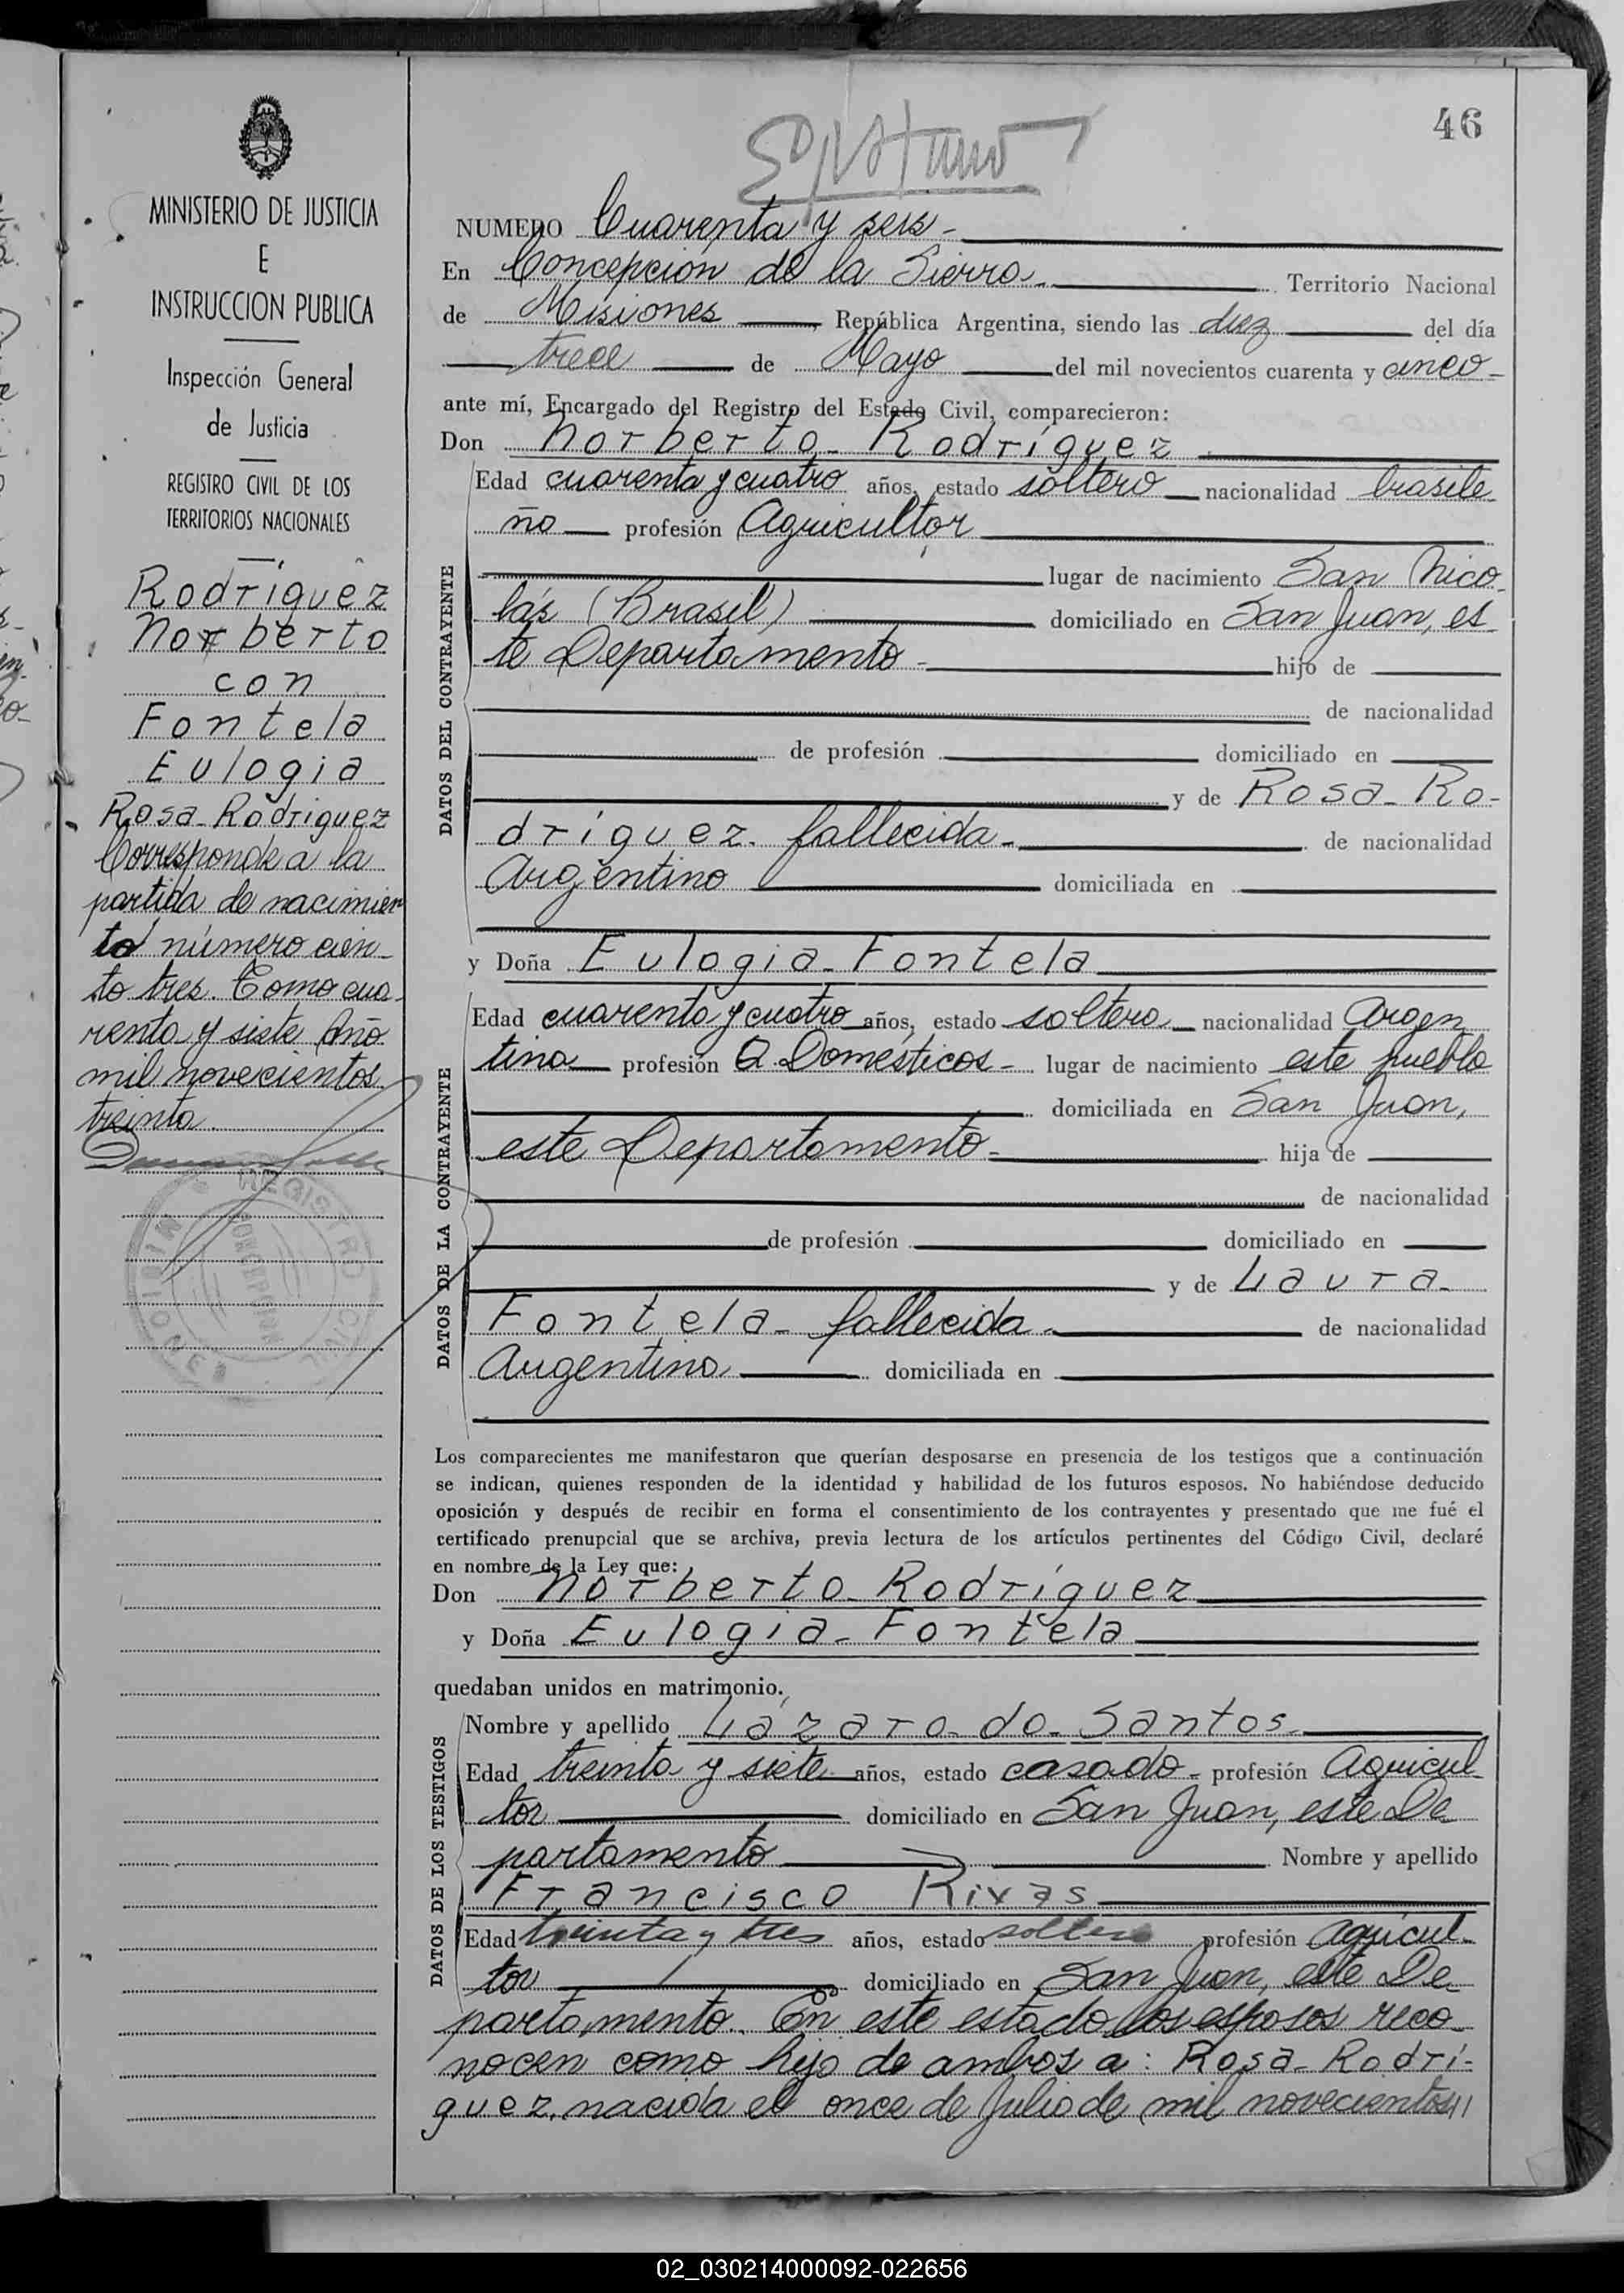 46
MINISTERIO DE JUSTICIA
E
INSTRUCCION PUBLICA
Inspección General
de Justicia
REGISTRO CIVIL DE LOS
TERRITORIOS NACIONALES
Rodríguez
Norberto
con
Fontela
Eulogia
Rosa Rodriguez
Corresponde a la
partida de nacimien
to número cien
to tres. Tomo cua
renta y siete Año
mil novecientos
treinta
REGISTRO CIVIL
CONCEPCION
MISIONES
NUMERO Cuarenta y seis -
En Concepción de la Sierra Territorio Nacional
de Misiones República Argentina, siendo las diez del día
trece de Mayo del mil novecientos cuarenta y cinco
ante mí, Encargado del Registro del Estado Civil, comparecieron:
Don Norberto Rodríguez
DATOS DEL CONTRAYENTE
Edad cuarenta y cuatro años, estado soltero nacionalidad brasile
ño profesión Agricultor
lugar de nacimiento San Nico
lás (Brasil) domiciliado en San Juan, es
te Departamento hijo de
de nacionalidad
de profesión domiciliado en
y de Rosa Ro-
dríguez. fallecida de nacionalidad
Argentina domiciliada en
y Doña Eulogia Fontela
DATOS DE LA CONTRAYENTE
Edad cuarenta y cuatro años, estado soltera nacionalidad Argen
tina profesión Q. Domésticos lugar de nacimiento este pueblo
domiciliada en San Juan,
este Departamento hija de
de nacionalidad
de profesión domiciliado en
y de Laura
Fontela fallecida de nacionalidad
Argentina domiciliada en
Los comparecientes me manifestaron que querían desposarse en presencia de los testigos que a continuación
se indican, quienes responden de la identidad y habilidad de los futuros esposos. No habiéndose deducido
oposición y después de recibir en forma el consentimiento de los contrayentes y presentado que me fué el
certificado prenupcial que se archiva, previa lectura de los artículos pertinentes del Código Civil, declaré
en nombre de la Ley que:
Don Norberto Rodríguez
y Doña Eulogia Fontela
quedaban unidos en matrimonio.
DATOS DE LOS TESTIGOS
Nombre y apellido Lázaro do Santos
Edad treinta y siete años, estado casado profesión Agricul
tor domiciliado en San Juan, este De
partamento Nombre y apellido
Francisco Rivas
Edad treinta y tres años, estado soltero profesión Agricul-
tor domiciliado en San Juan, este De
partamento. En este estado los esposos reco
nocen como hijo de ambos a: Rosa Rodrí-
guez, nacida el once de Julio de mil novecientos//
02_030214000092-022656